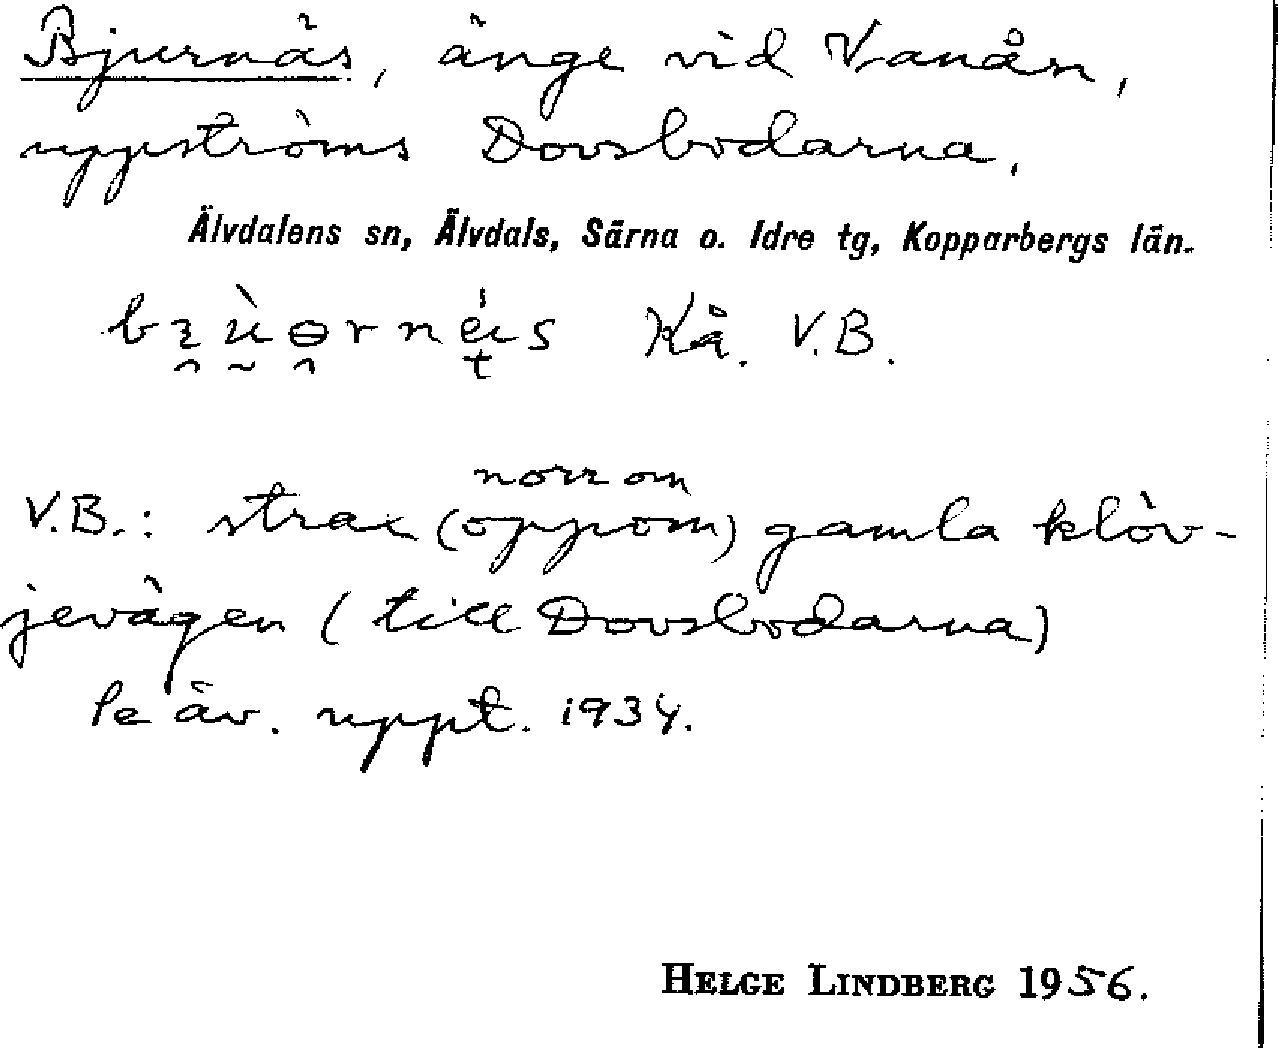 Bjurnäs, änge vid Vanån,
uppströms Dovsbodarna.
Älvdalens sn, Älvdals, Särna o. Idre tg, Kopparbergs län.
Kå. V.B.
norr om
V.B.: strax (oppom) gamla klöv-
jevägen (till Dovsbodarna)
Pe äv. uppt. 1934.
HELGE LINDBERG 1956.